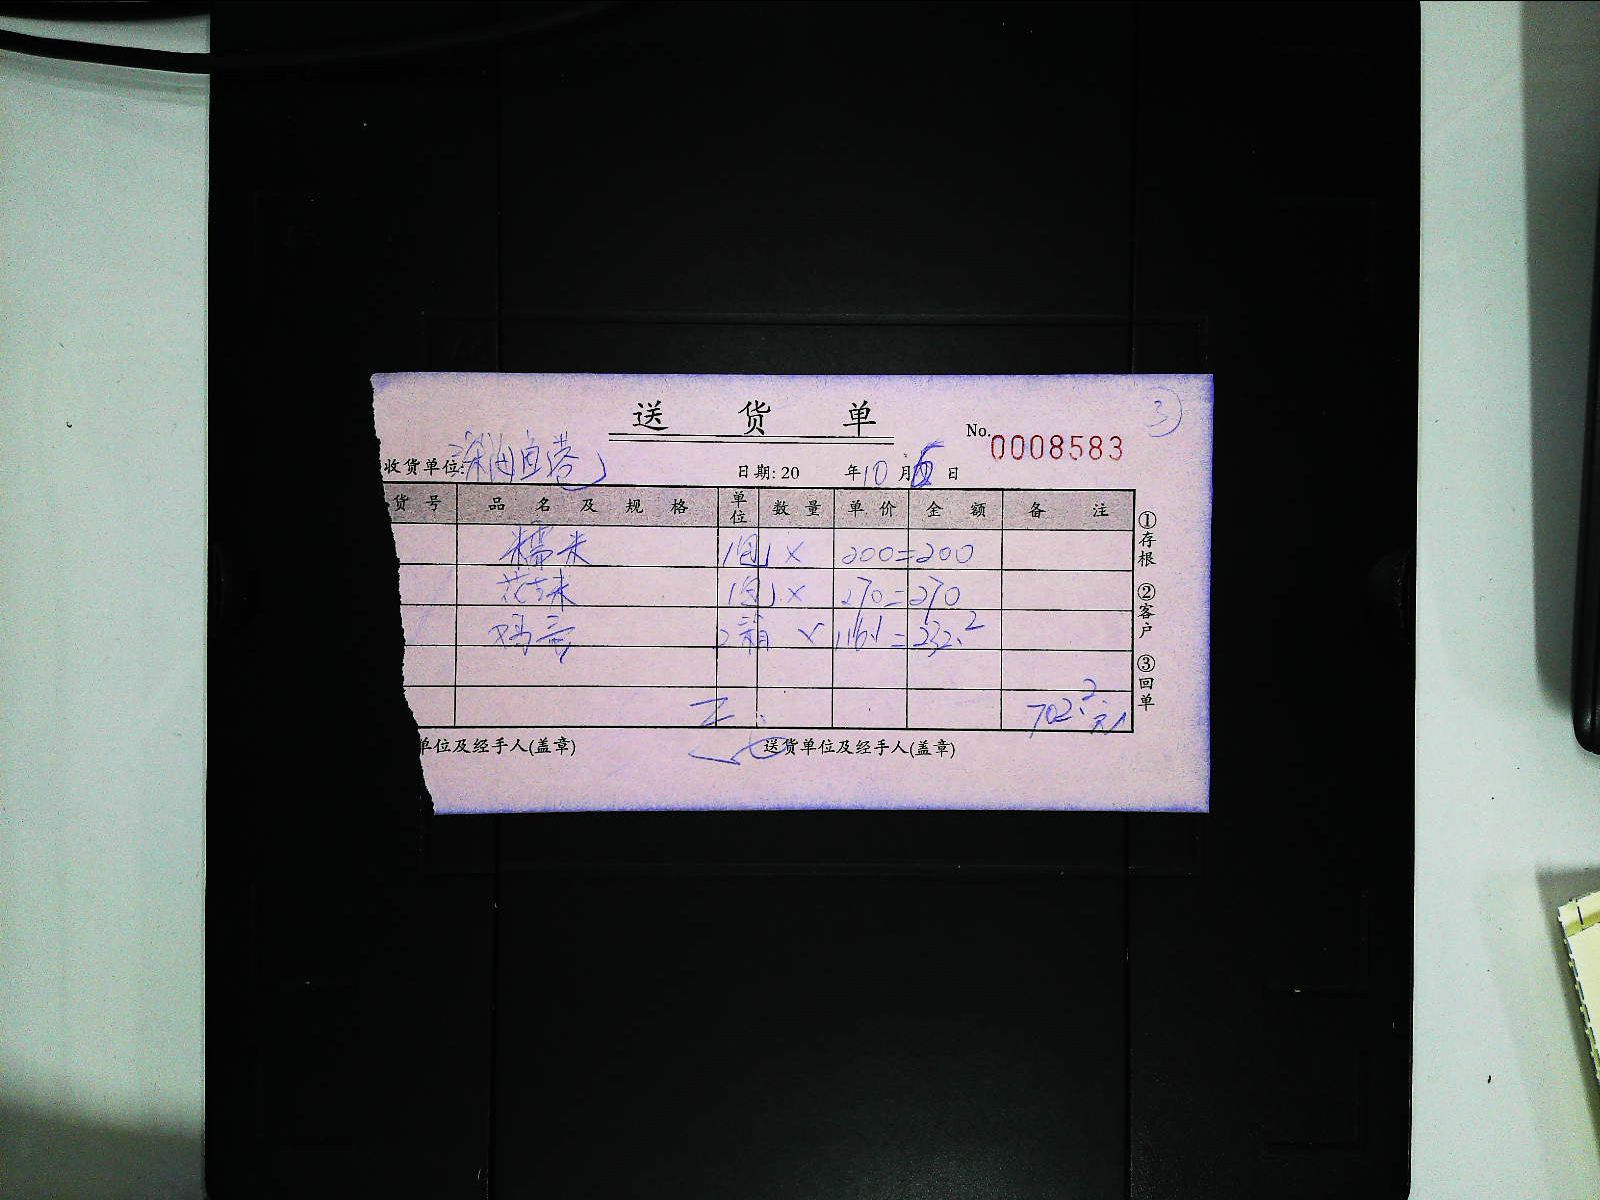 送 货 单
③
No. 0008583
收货单位: 深海鱼巷
日期: 20 年 10 月 日
货 号 品 名 及 规 格 单位 数 量 单 价 金 额 备 注
糯米 1包 × 200=200
1包 × 270=270
2箱 × 116.1=232.2
702.2元
单位及经手人(盖章) 送货单位及经手人(盖章)
①存根 ②客户 ③回单